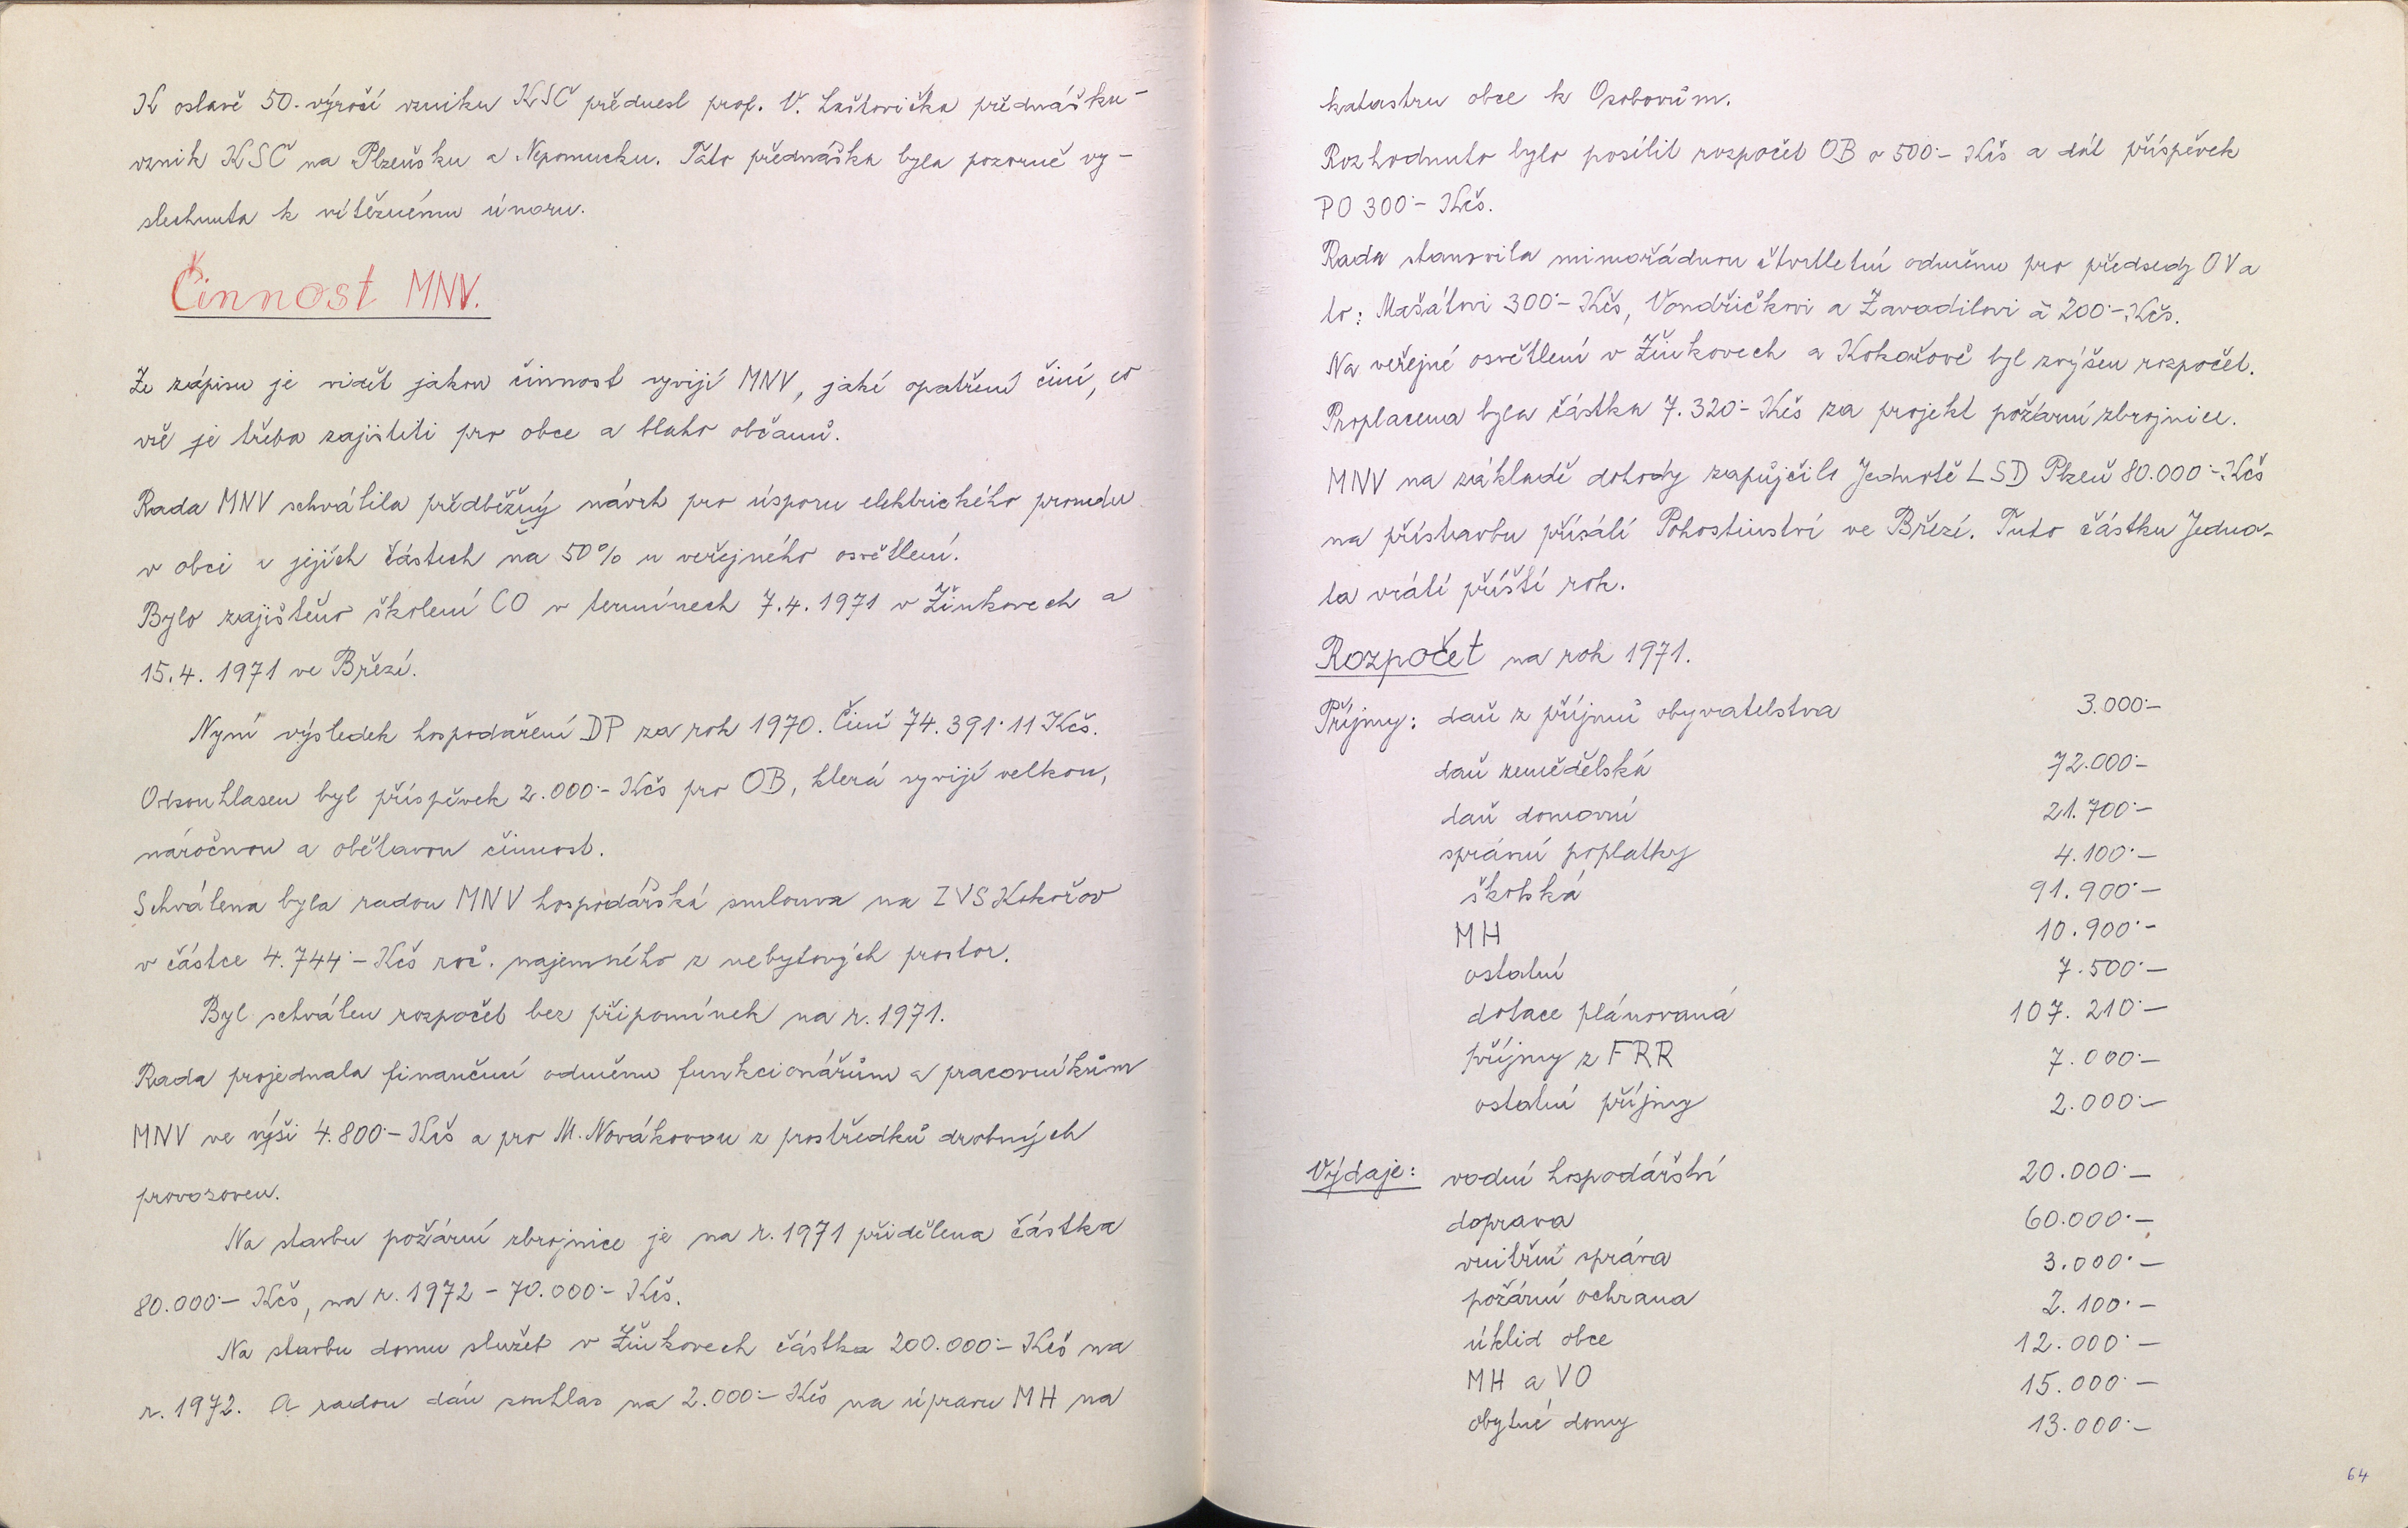 K oslavě 50. výročí vzniku KSČ přednesl prof. V. Laštovička přednášku-
vznik KSČ na Plzeňsku a Nepomucku. Tato přednáška byla pozorně vy-
slechnuta k vítěznému únoru.
Činnost MNV.
Ze zápisu je vidět jakou činnost vyvíjí MNV, jaké opatření činí, co
vše je třeba zajistiti pro obce a blaho občanů.
Rada MNV schválila předběžný návrh pro úsporu elektrického proudu
v obci a jejích částech na 50% u veřejného osvětlení.
Bylo zajištěno školení CO v termínech 7.4. 1971 v Žinkovech a
15.4. 1971 ve Březí.
Nyní výsledek hospodaření DP za rok 1970. Činí 74.391·11 Kčs.
Odsouhlasen byl příspěvek 2.000·- Kčs pro OB, která vyvíjí velkou,
náročnou a obětavou činnost.
Schválena byla radou MNV hospodářská smlouva na ZVS Kokořov
v částce 4.744·- Kčs roč. najemného z nebytových prostor.
Byl schválen rozpočet bez připomínek na r. 1971.
Rada projednala finanční odměnu funkcionářům a pracovníkům
MNV ve výši 4.800·- Kčs a pro M. Novákovou z prostředků drobných
provozoven.
Na stavbu požární zbrojnice je na r. 1971 přidělena částka
80.000·- Kčs, na r. 1972 - 70.000·- Kčs.
Na stavbu domu služeb v Žinkovech částka 200.000·- Kčs na
r. 1972. A radou dán souhlas na 2.000·- Kčs na úpravu MH na
katastru obce k Osobovům.
Rozhodnuto bylo posílit rozpočet OB o 500·- Kčs a dát příspěvek
PO 300·- Kčs.
Rada stanovila mimořádnou čtvrtletní odměnu pro předsedy OV a
to: Mašátovi 300·- Kčs, Vondřičkovi a Zavadilovi à 200·- Kčs.
Na veřejné osvětlení v Žinkovech a Kokořově byl zvýšen rozpočet.
Proplacena byla částka 7.320·- Kčs za projekt požární zbrojnice.
MNV na základě dohody zapůjčilo Jednotě LSD Plzeň 80.000·- Kčs
na přístavbu přísálí Pohostinství ve Březí. Tuto částku Jedno-
ta vrátí příští rok.
Rozpočet na rok 1971.
Příjmy: daň z příjmů obyvatelstva 3.000·-
daň zemědělská 72.000·-
daň domovní 21.700·-
správní poplatky 4.100·-
školská 91.900·-
MH 10.900·-
ostatní 7.500·-
dotace plánovaná 107.210·-
příjmy z FRR 7.000·-
ostatní příjmy 2.000·-
Výdaje: vodní hospodářství 20.000·-
doprava 60.000·-
vnitřní správa 3.000·-
požární ochrana 2.100·-
úklid obce 12.000·-
MH a VO 15.000·-
obytné domy 13.000·-
64